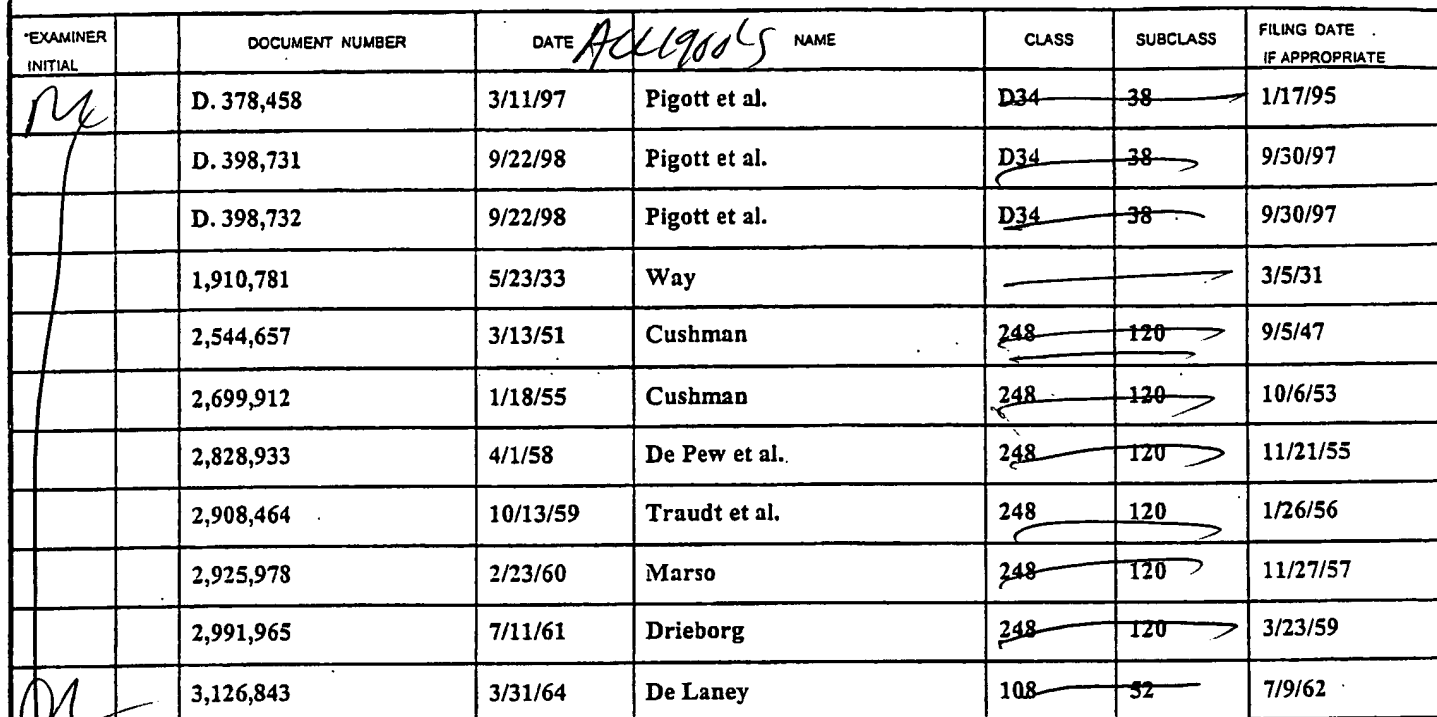 *EXAMINER INITIAL DOCUMENT NUMBER DATE NAME CLASS SUBCLASS FILING DATE IF APPROPRIATE
D. 378,458 3/11/97 Pigott et al. D34 38 1/17/95
D. 398,731 9/22/98 Pigott et al. D34 38 9/30/97
D. 398,732 9/22/98 Pigott et al. D34 38 9/30/97
1,910,781 5/23/33 Way 3/5/31
2,544,657 3/13/51 Cushman 248 120 9/5/47
2,699,912 1/18/55 Cushman 248 120 10/6/53
2,828,933 4/1/58 De Pew et al. 248 120 11/21/55
2,908,464 10/13/59 Traudt et al. 248 120 1/26/56
2,925,978 2/23/60 Marso 248 120 11/27/57
2,991,965 7/11/61 Drieborg 248 120 3/23/59
3,126,843 3/31/64 De Laney 108 52 7/9/62